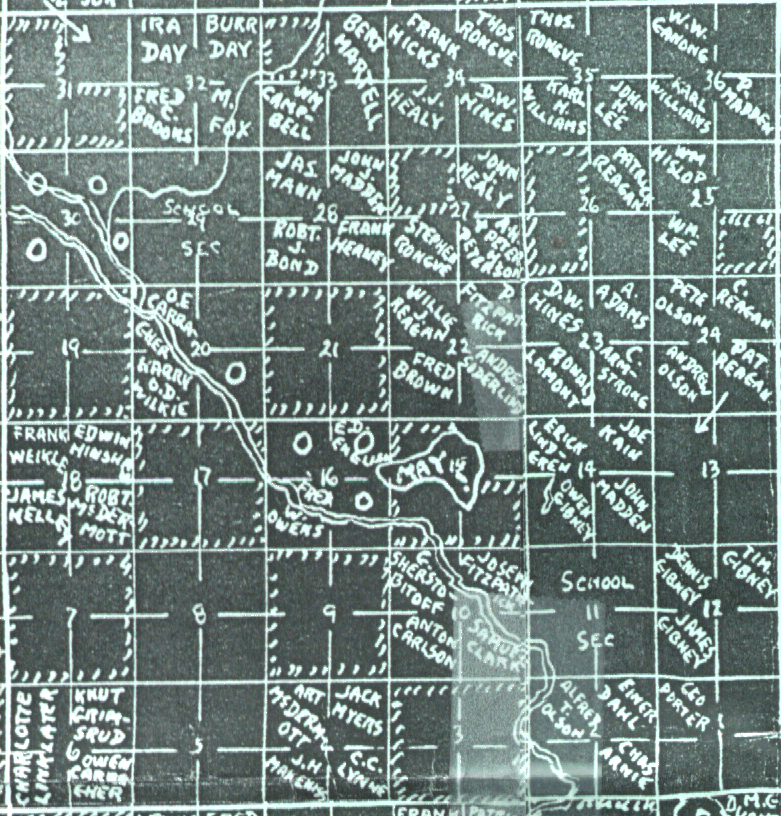 IRA DAY
BURR DAY
BERT MARTELL
FRANK HICKS
THOS RONGVE
THOS. RONGVE
W.W. CANONG
31
FRED C. BROOKS
32
M. FOX
WM CAMPBELL
33
J.J. HEALY
34
D.W. HINES
KARL H. WILLIAMS
35
JOHN H. LEE
KARL WILLIAMS
36
P. MADDEN
JAS. MANN
JOHN J. MADDEN
JOHN HEALY
PATRICK REAGAN
WM HISLOP
25
30
SCHOOL
29
SEC
ROBT. J. BOND
28
FRANK HEANEY
STEPHEN RONGVE
27
A.H. & PETER H. PETERSON
26
WM. LEE
O.E. CARRAGHER
HARRY O.D. WILKIE
WILLIE J. REAGAN
P. FITZPATRICK
D.W. HINES
A. ADAMS
PETE OLSON
C. REAGAN
19
20
21
FRED BROWN
22
ANDREW SODERLIND
RONALD LAMONT
23
C. ARMSTRONG
ANDREW OLSON
24
PAT. REAGAN
FRANK WEIKLE
EDWIN HINSHA
E.D. ENGLISH
ERICK LINDGREN
JOE KAIN
18
17
16
MAY 15
14
13
JAMES KELLEY
ROBT MCDERMOTT
FRED W. OWENS
OWEN GIBNEY
JOHN MADDEN
C. SHERSTOBITOFF
JOSEPH FITZPATRICK
SCHOOL
DENNIS GIBNEY
TIM. GIBNEY
7
8
9
ANTON CARLSON
10
SAMUEL CLARK
11
SEC
12
JAMES GIBNEY
CHARLOTTE LINKLATER
KNUT GRIMSRUD
ART MCDERMOTT
JACK MYERS
ALFRED T. OLSON
EINER DAHL
GEO PORTER
6
5
3
2
1
OWEN CARRAGHER
J.H.
C.C. LYNNE
CHAS. ARNIE
FRANK
D. MCG